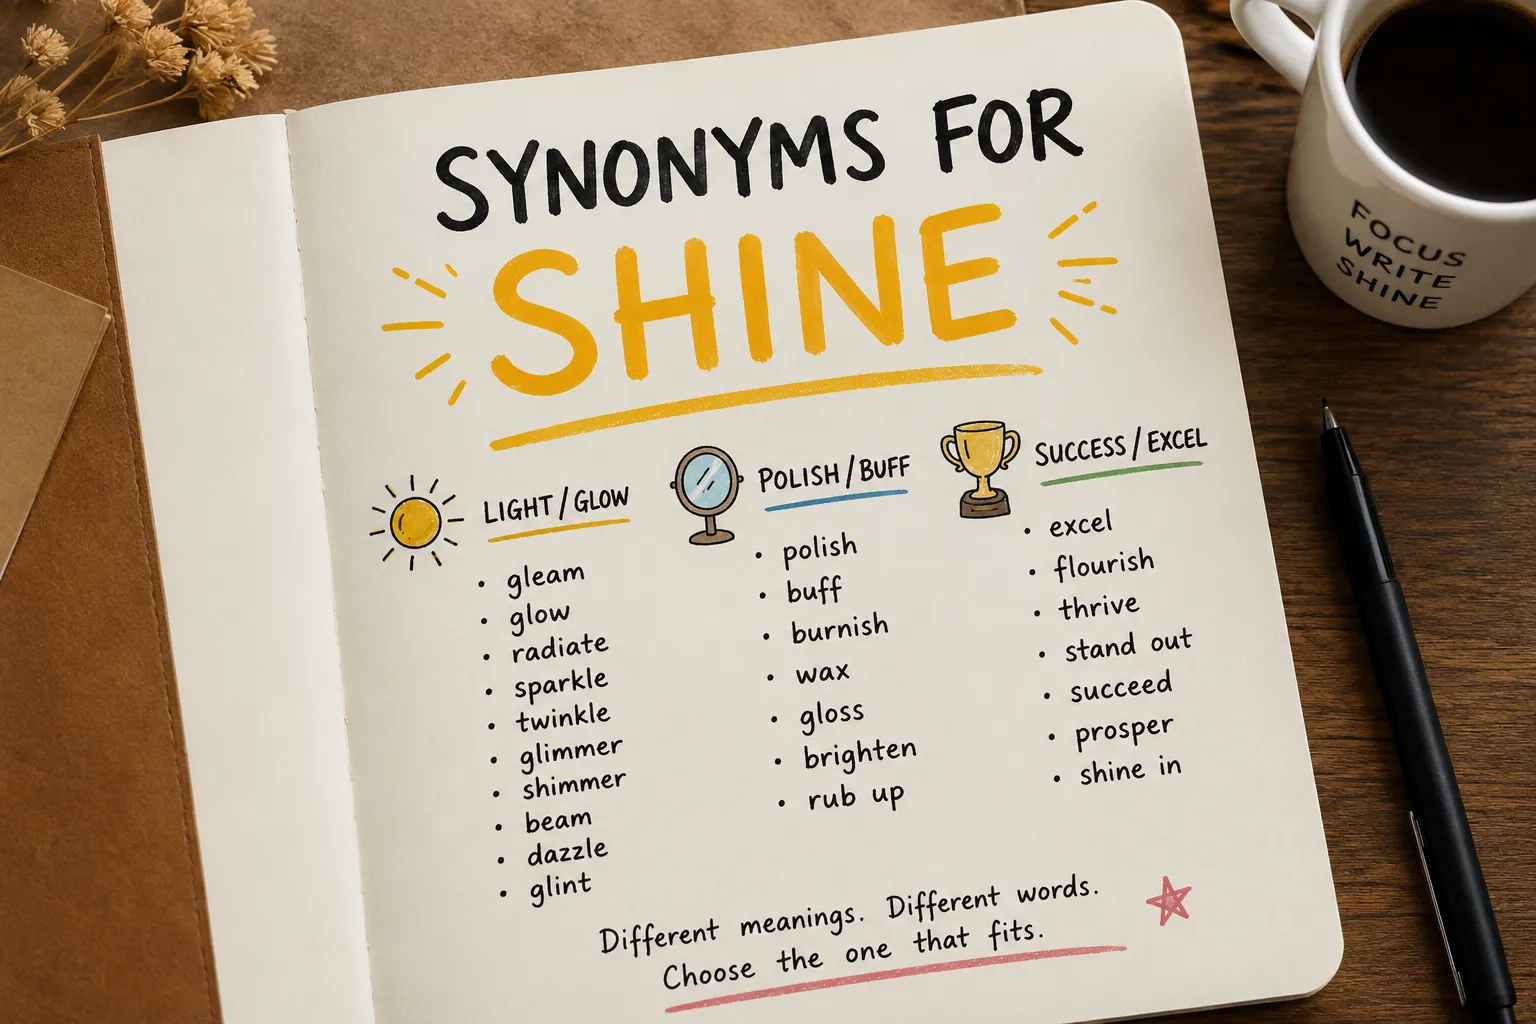 SYNONYMS FOR
SHINE
LIGHT / GLOW
• gleam
• glow
• radiate
• sparkle
• twinkle
• glimmer
• shimmer
• beam
• dazzle
• glint
POLISH / BUFF
• polish
• buff
• burnish
• wax
• gloss
• brighten
• rub up
SUCCESS / EXCEL
• excel
• flourish
• thrive
• stand out
• succeed
• prosper
• shine in
Different meanings. Different words.
Choose the one that fits.
FOCUS
WRITE
SHINE